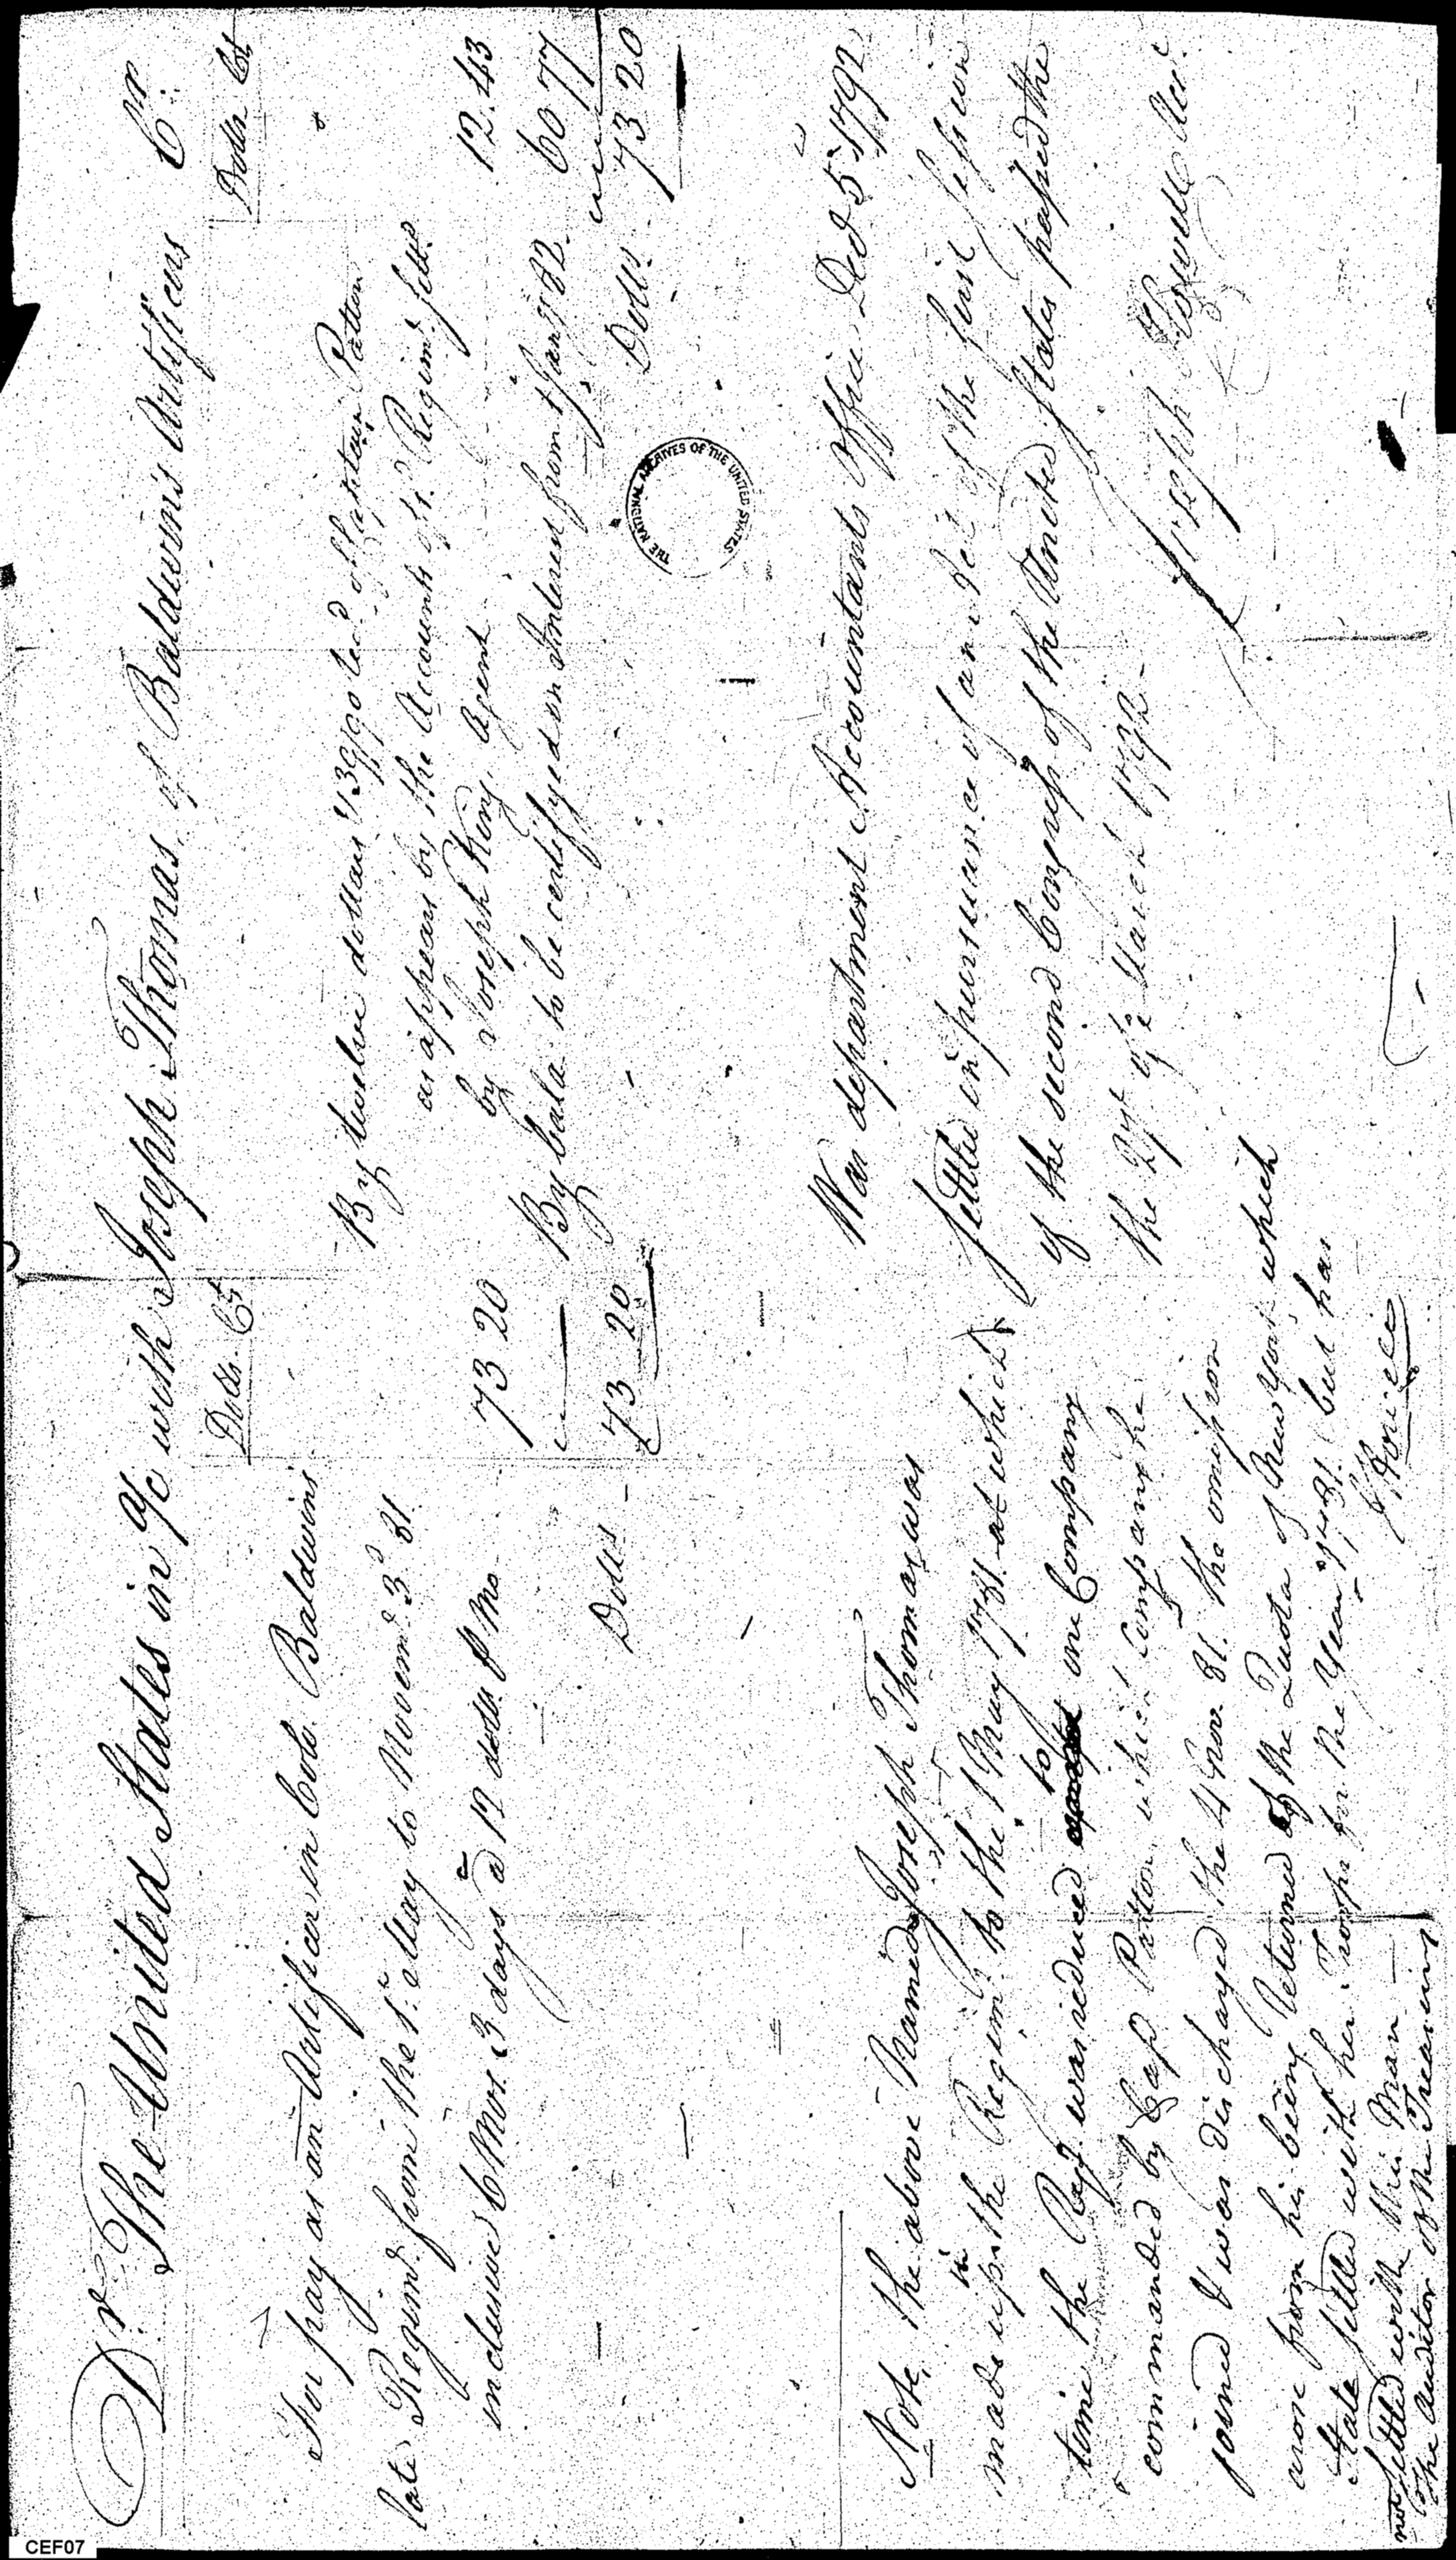 Dr. The United States in a/c with Joseph Thomas, of Baldwins Artificers Cr.
Dolls. Cts
Dolls Cts
For pay as an Artificer in Colo. Baldwins
late Regimt. from the 1st. May to Novemr. 3d 81.
inclusive 6 Mos. 3 days @ 12 dolls P Mo.
73 20
Dolls
73 20
By twelve dollars 43/90 ted. of Captain Patten
as appears by the Accounts of sd. Regimt. settd.
by Joseph King, Agent
12.43
By bala. to be certifyed on Interest from 4 Jany 82.
60 77
Dolls.
73 20
THE NATIONAL ARCHIVES OF THE UNITED STATES
Note, the above Named Joseph Thomas was
made up in the Regimt. to the 1 May 1781 at which
time the Regt. was reduced to one Company
commanded by Capt Patton which Company he
joined & was discharged the 4 Nov. 81. the omission
arose from his being returned of the Quota of New York which
State settled with her Troops for the Year 1781. but has
not settled with this Man —
the Auditor of the Treasury
J Howell
War department Accountants Office Decr 5 1792
Settled in pursuance of an Act of the first session
of the second Congress of the United States passed the
the 27th of March 1792 —
Joseph Howell Acct.
CEF07